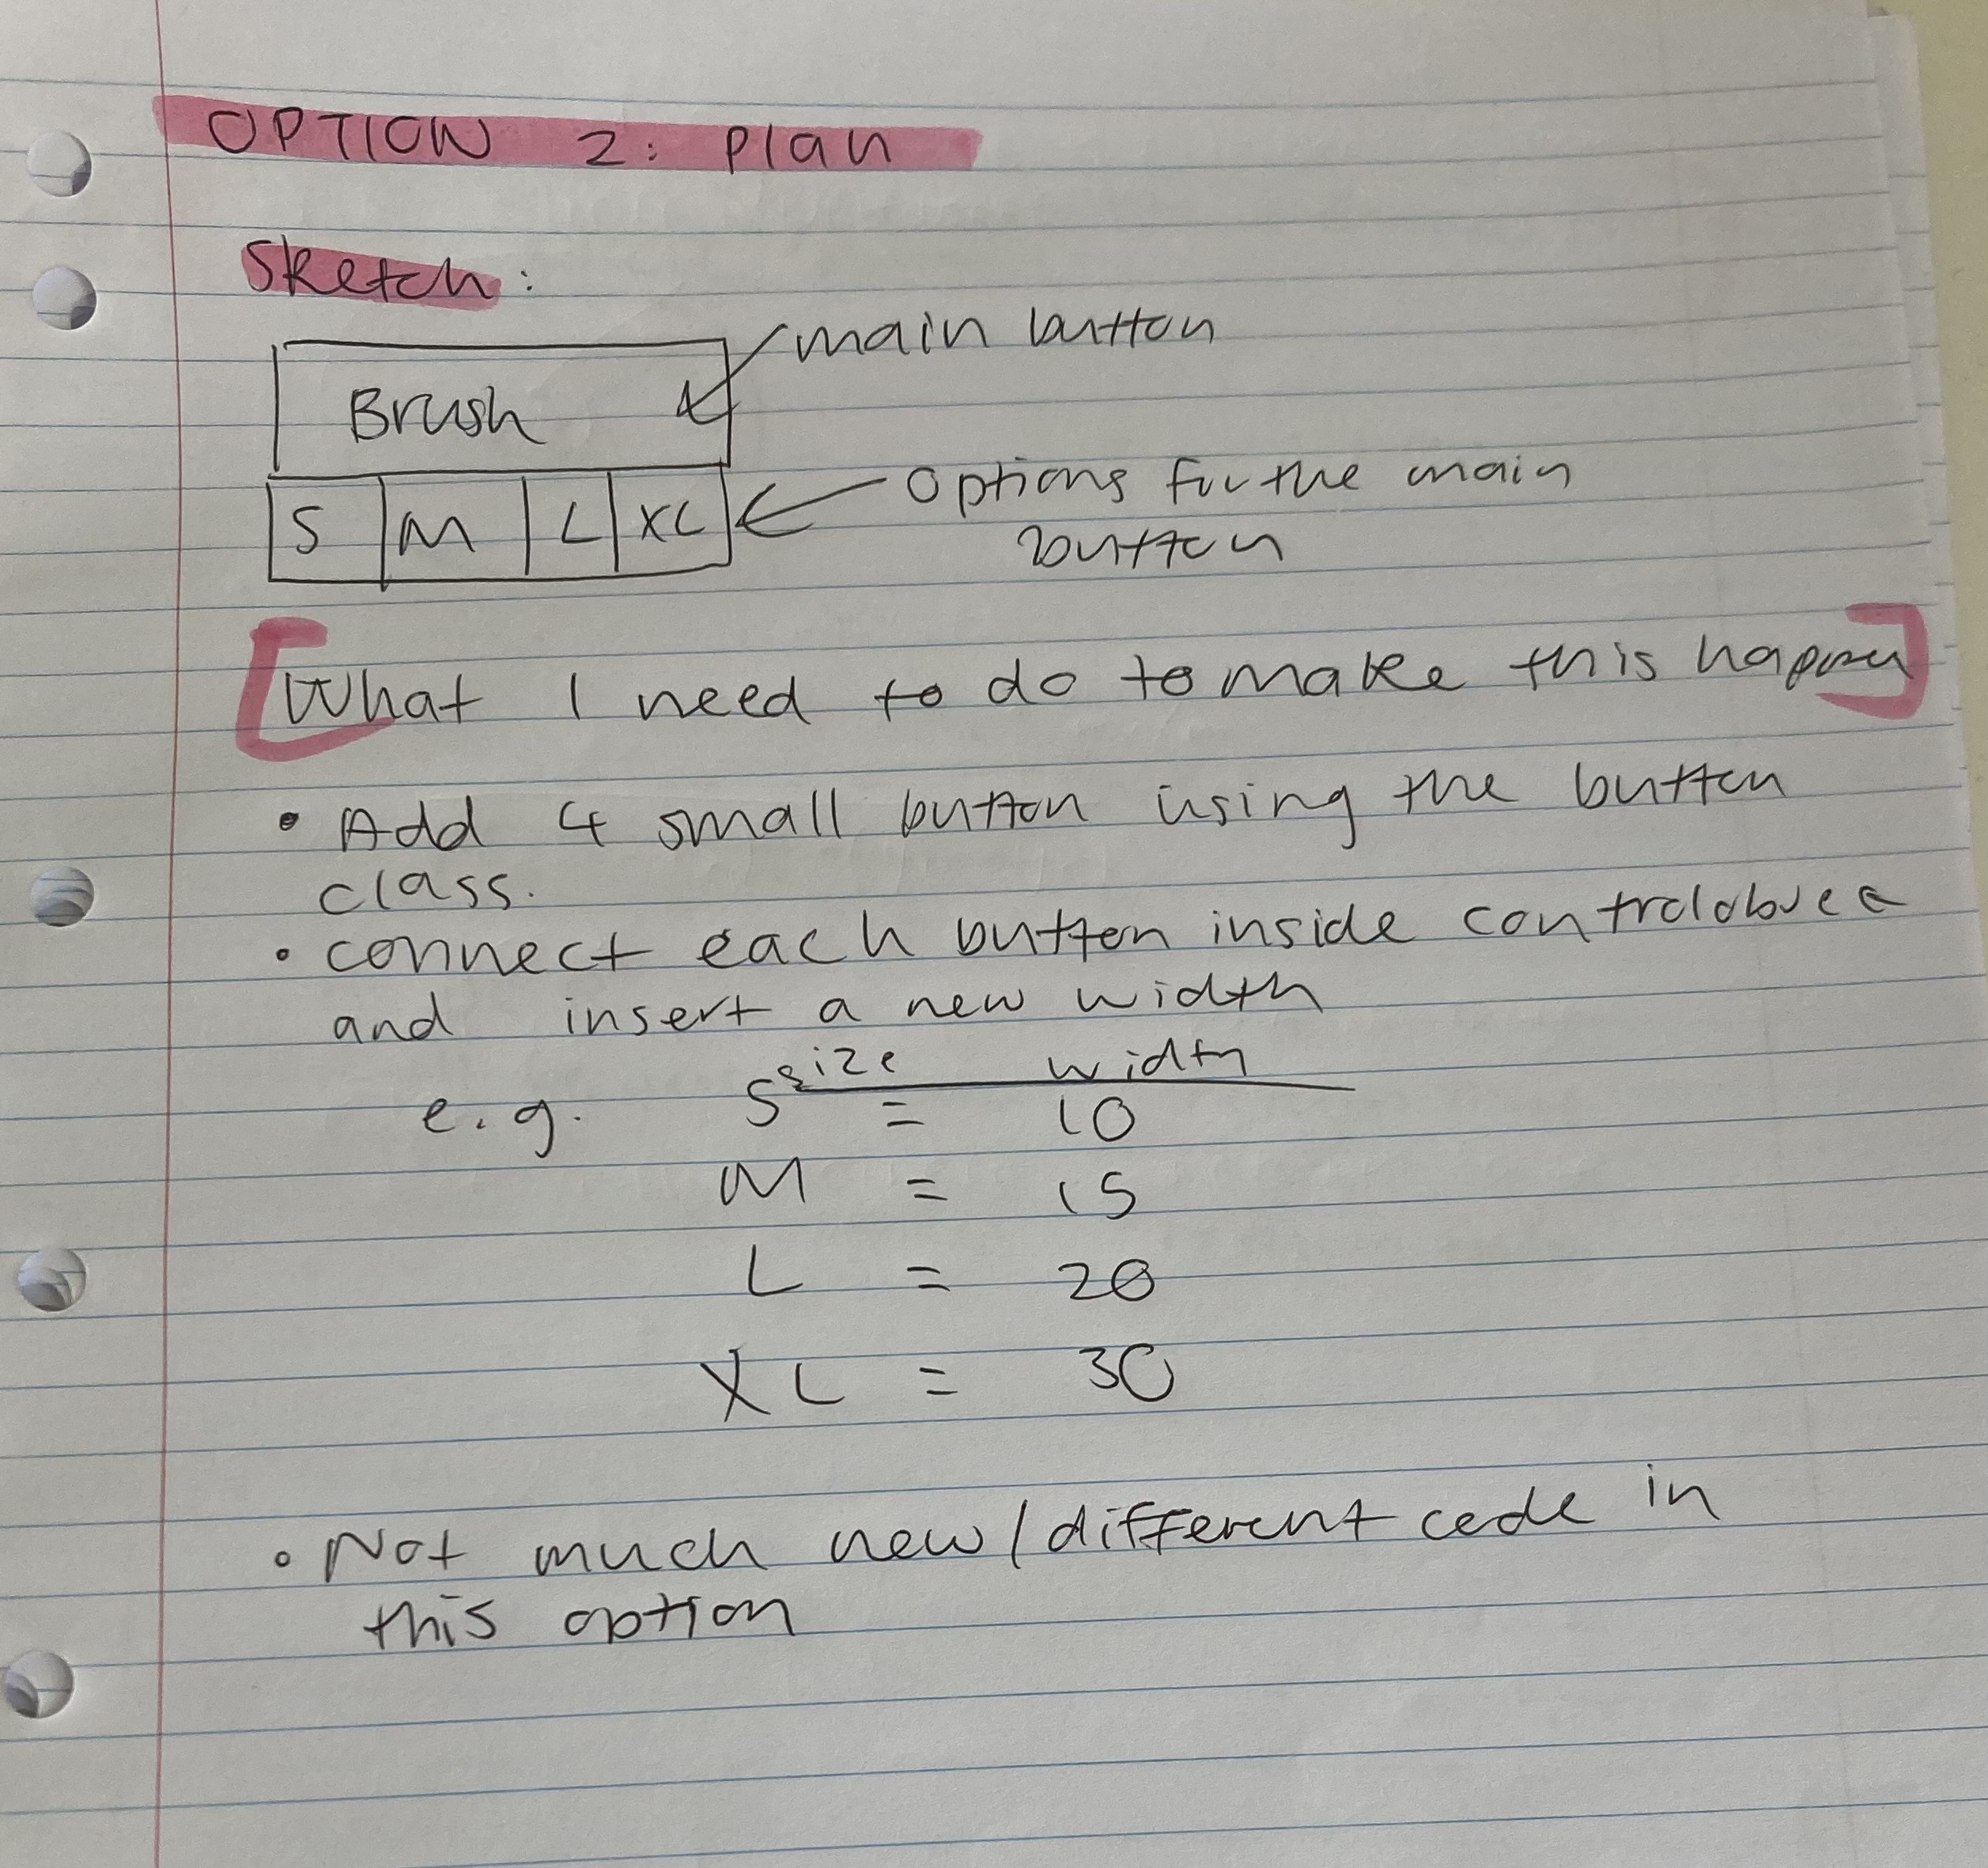 OPTION 2: Plan
Sketch:
main button
Brush
S M L XL
Options for the main
button
What I need to do to make this happen
• Add 4 small button using the button
class.
• connect each button inside
and insert a new width
size width
e.g. S = 10
M = 15
L = 20
XL = 30
• Not much new/different code in
this option